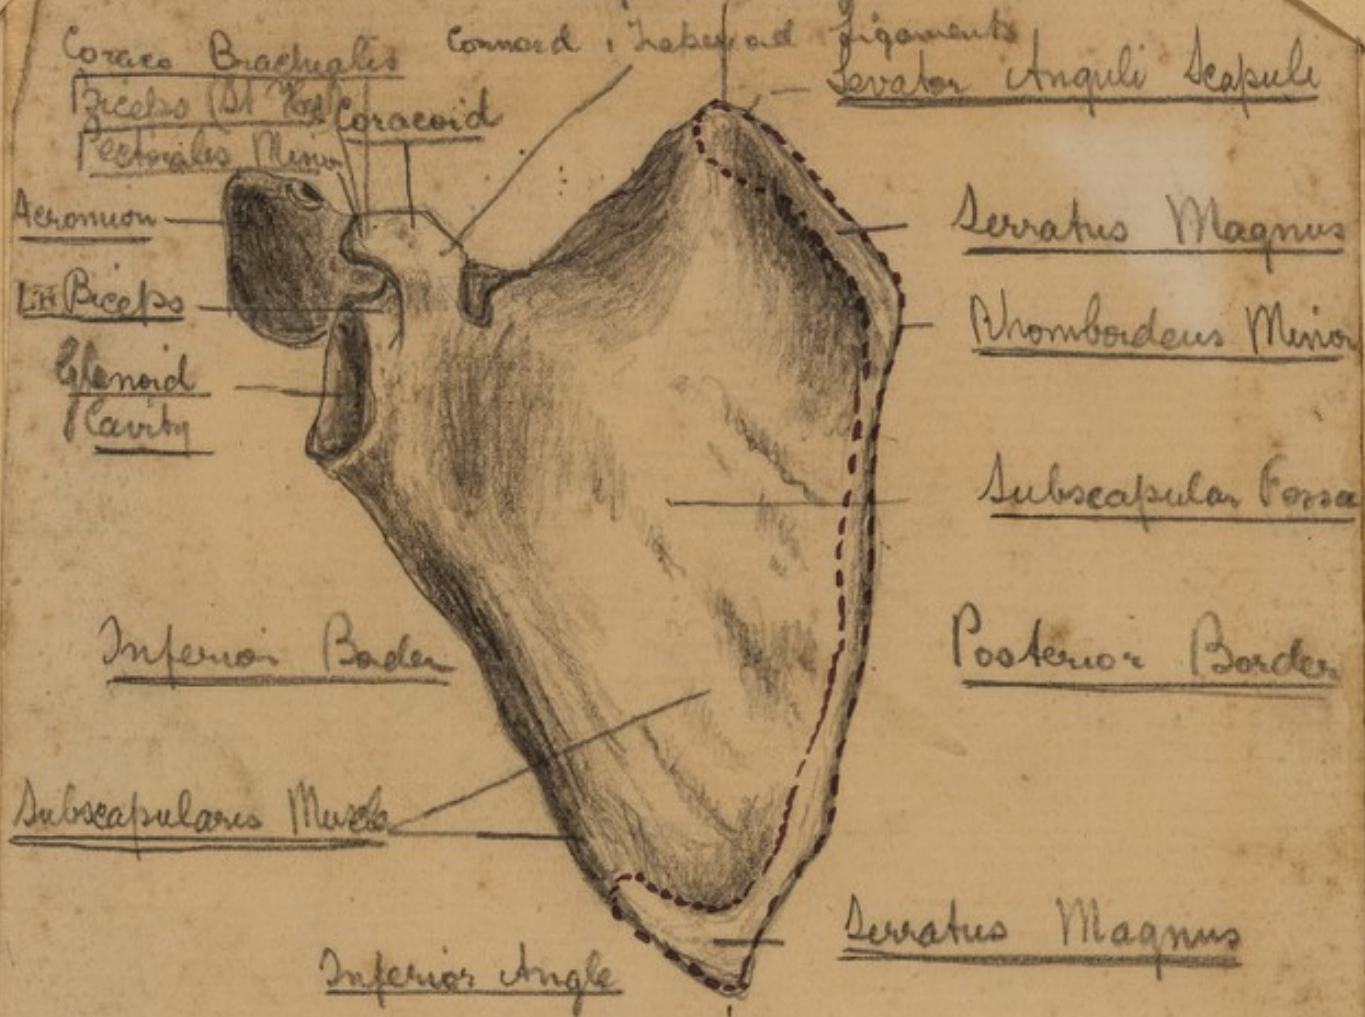 Coraco Brachialis
Biceps
Pectoralis Minor
Coracoid
Connoid & Trapezoid Ligaments
Levator Anguli Scapuli
Acromion
Serratus Magnus
L.H. Biceps
Rhomboideus Minor
Glenoid
Cavity
Subscapular Fossa
Inferior Border
Posterior Border
Subscapularis Muscle
Serratus Magnus
Inferior Angle